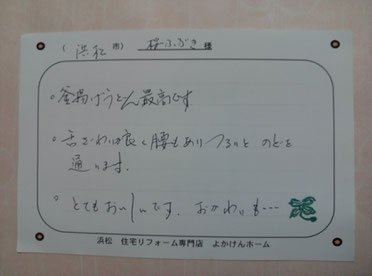 ( 浜松 市) 桜ふぶき 様
。釜揚げうどん最高です
。舌ざわりが良く腰もありつるっと のどを
通ります。
。とてもおいしいです。おかわりも…
浜松 住宅リフォーム専門店 よかけんホーム